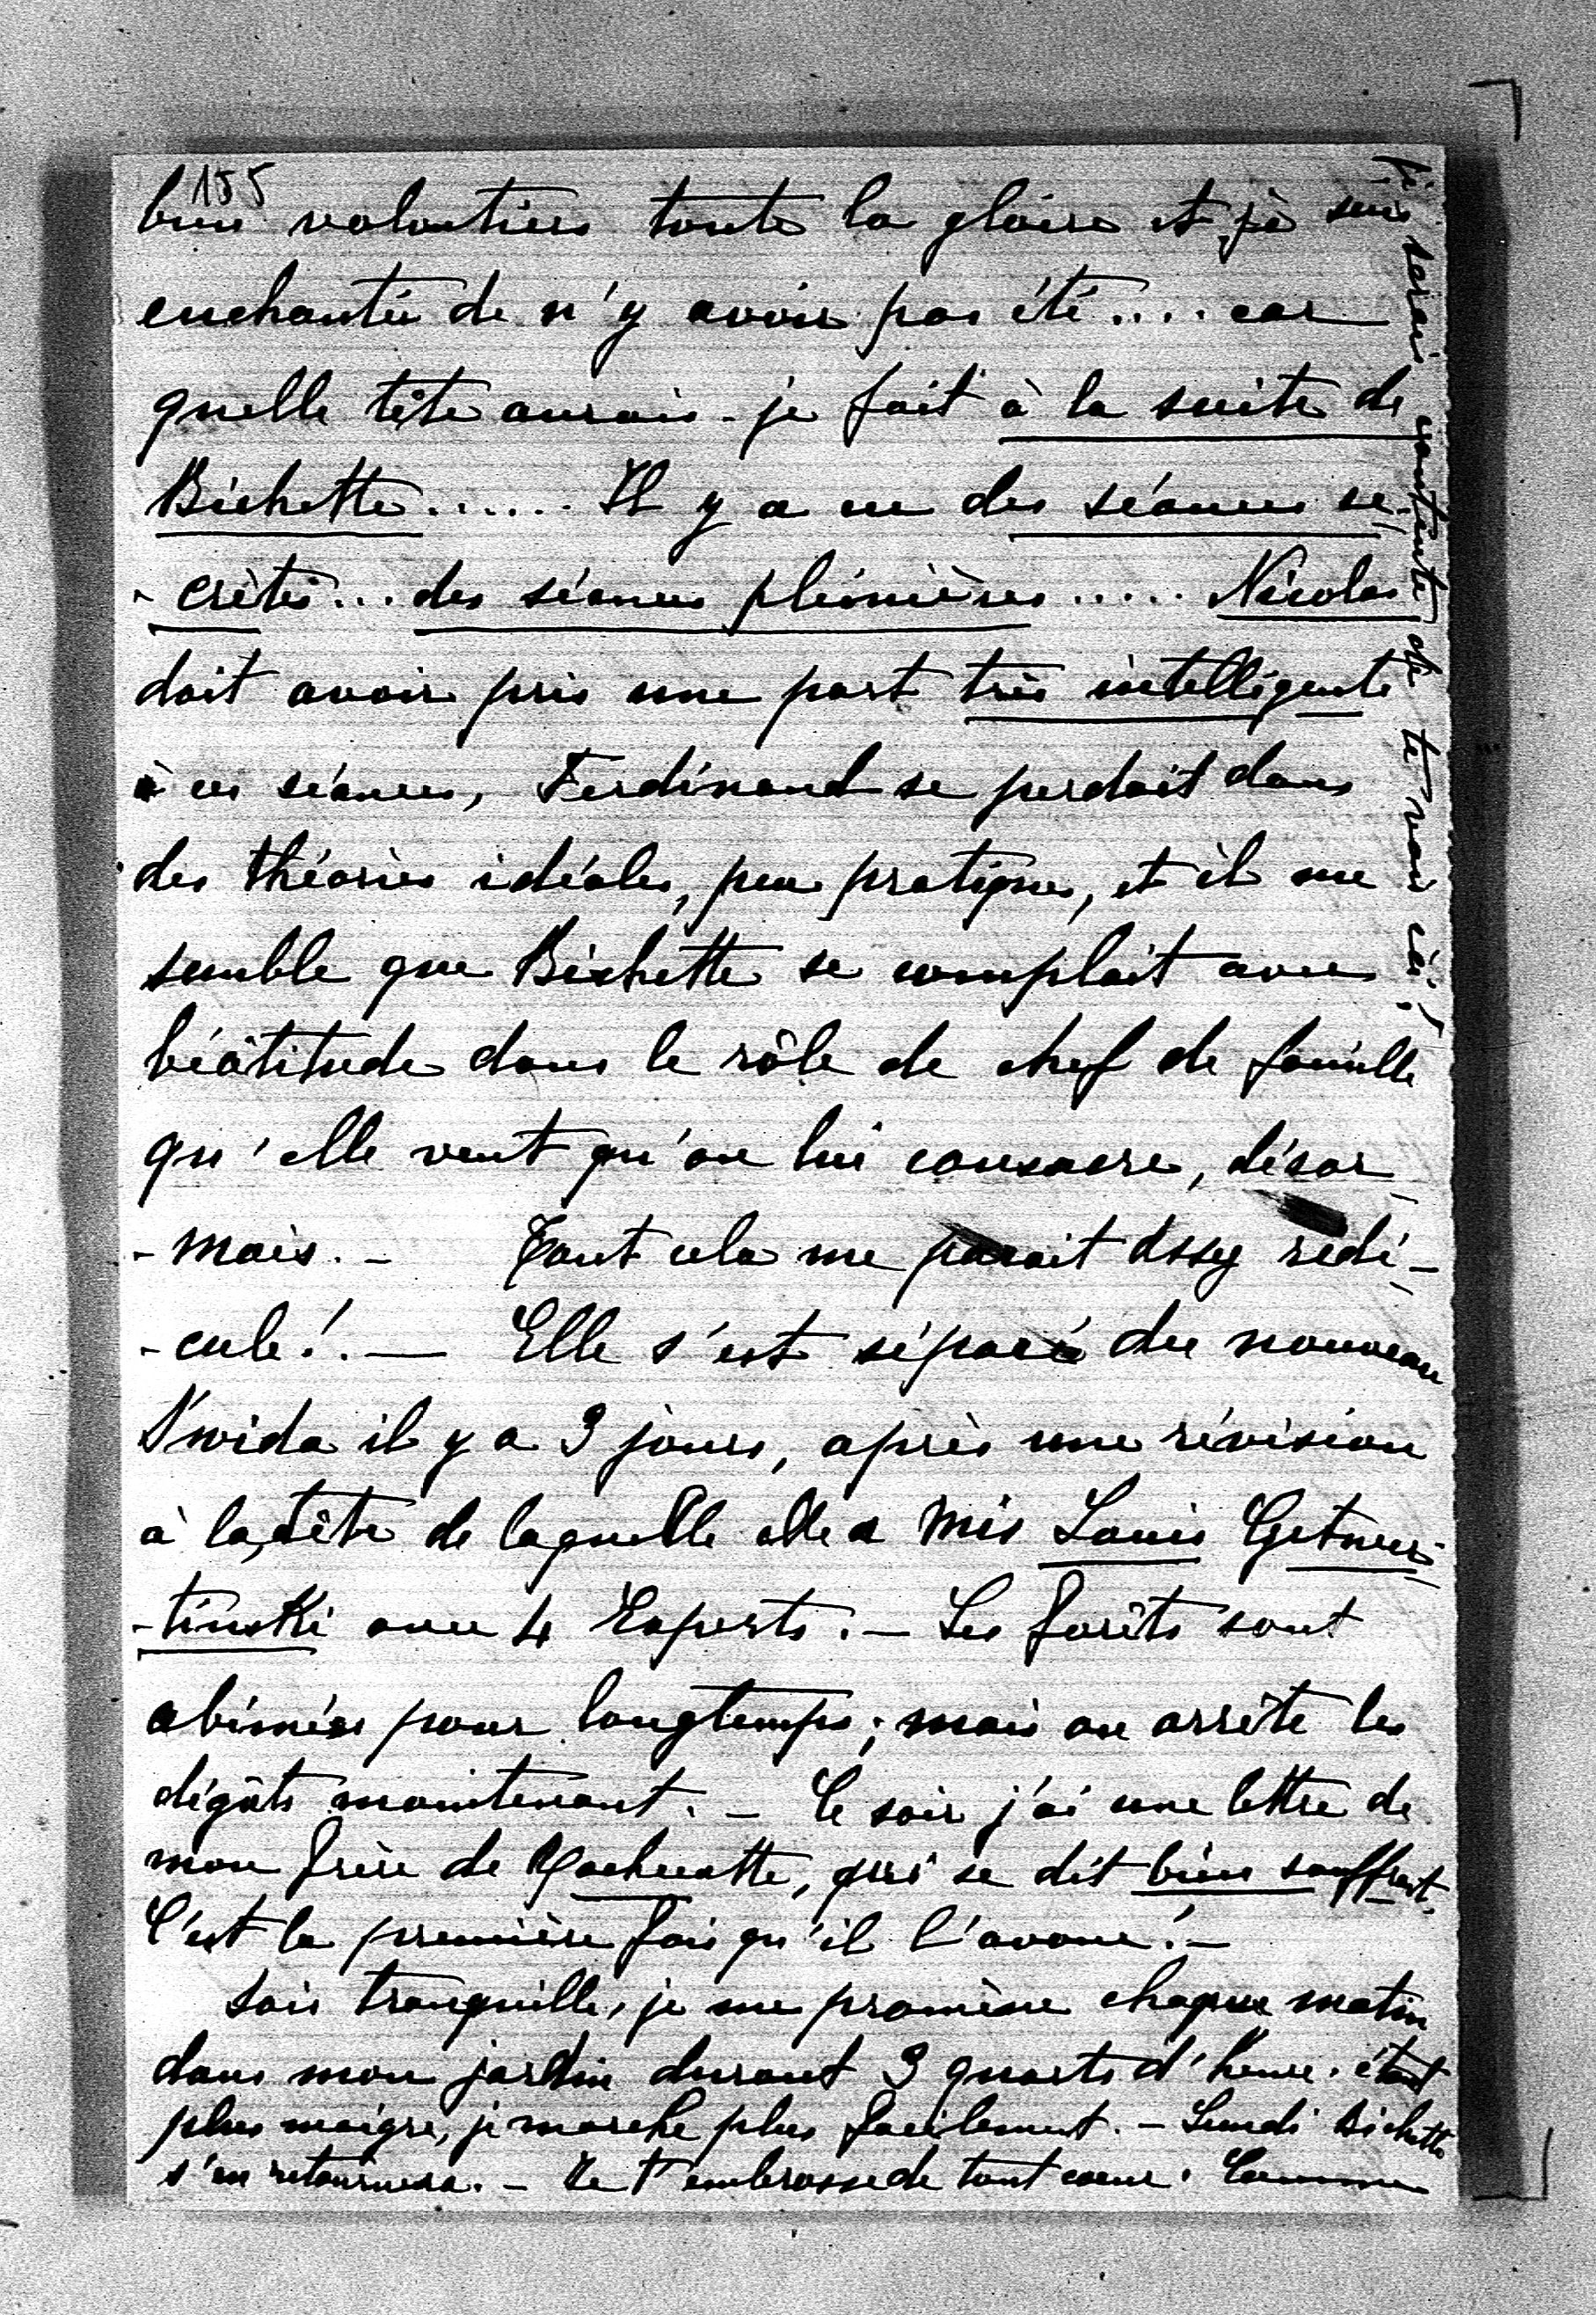 155
bien volontiers toute la gloire et je suis
enchantée de n'y avoir pas été.... car
quelle tête aurais-je fait à la suite de
Bichette...... Il y a eu des séances se-
-crètes... des séances plénières..... Nicolas
doit avoir pris une part très intelligente
à ces séances, Ferdinand se perdait dans
des théories idéales, peu pratiques, et il me
semble que Bichette se complait avec
béatitude dans le rôle de chef de famille
qu'elle veut qu'on lui consacre, désor-
-mais. – Tout cela me parait assez redi-
-cule! – Elle s'est séparée du nouveau
il y a 3 jours, après une révision
à la tête de laquelle elle a mis Louis
avec 4 Experts. – Les forêts sont
abimées pour longtemps; mais on arrête les
dégâts maintenant. – Ce soir j'ai une lettre de
mon frère de qui se dit bien souffrant.
C'est la première fois qu'il l'avoue! –
Sois tranquille, je me promène chaque matin
dans mon jardin durant 3 quarts d'heure. étant
plus maigre, je marche plus facilement. – Lundi Bichette
s'en retournera. – Je t'embrasse de tout coeur. Comme
je serai contente de te voir ici!